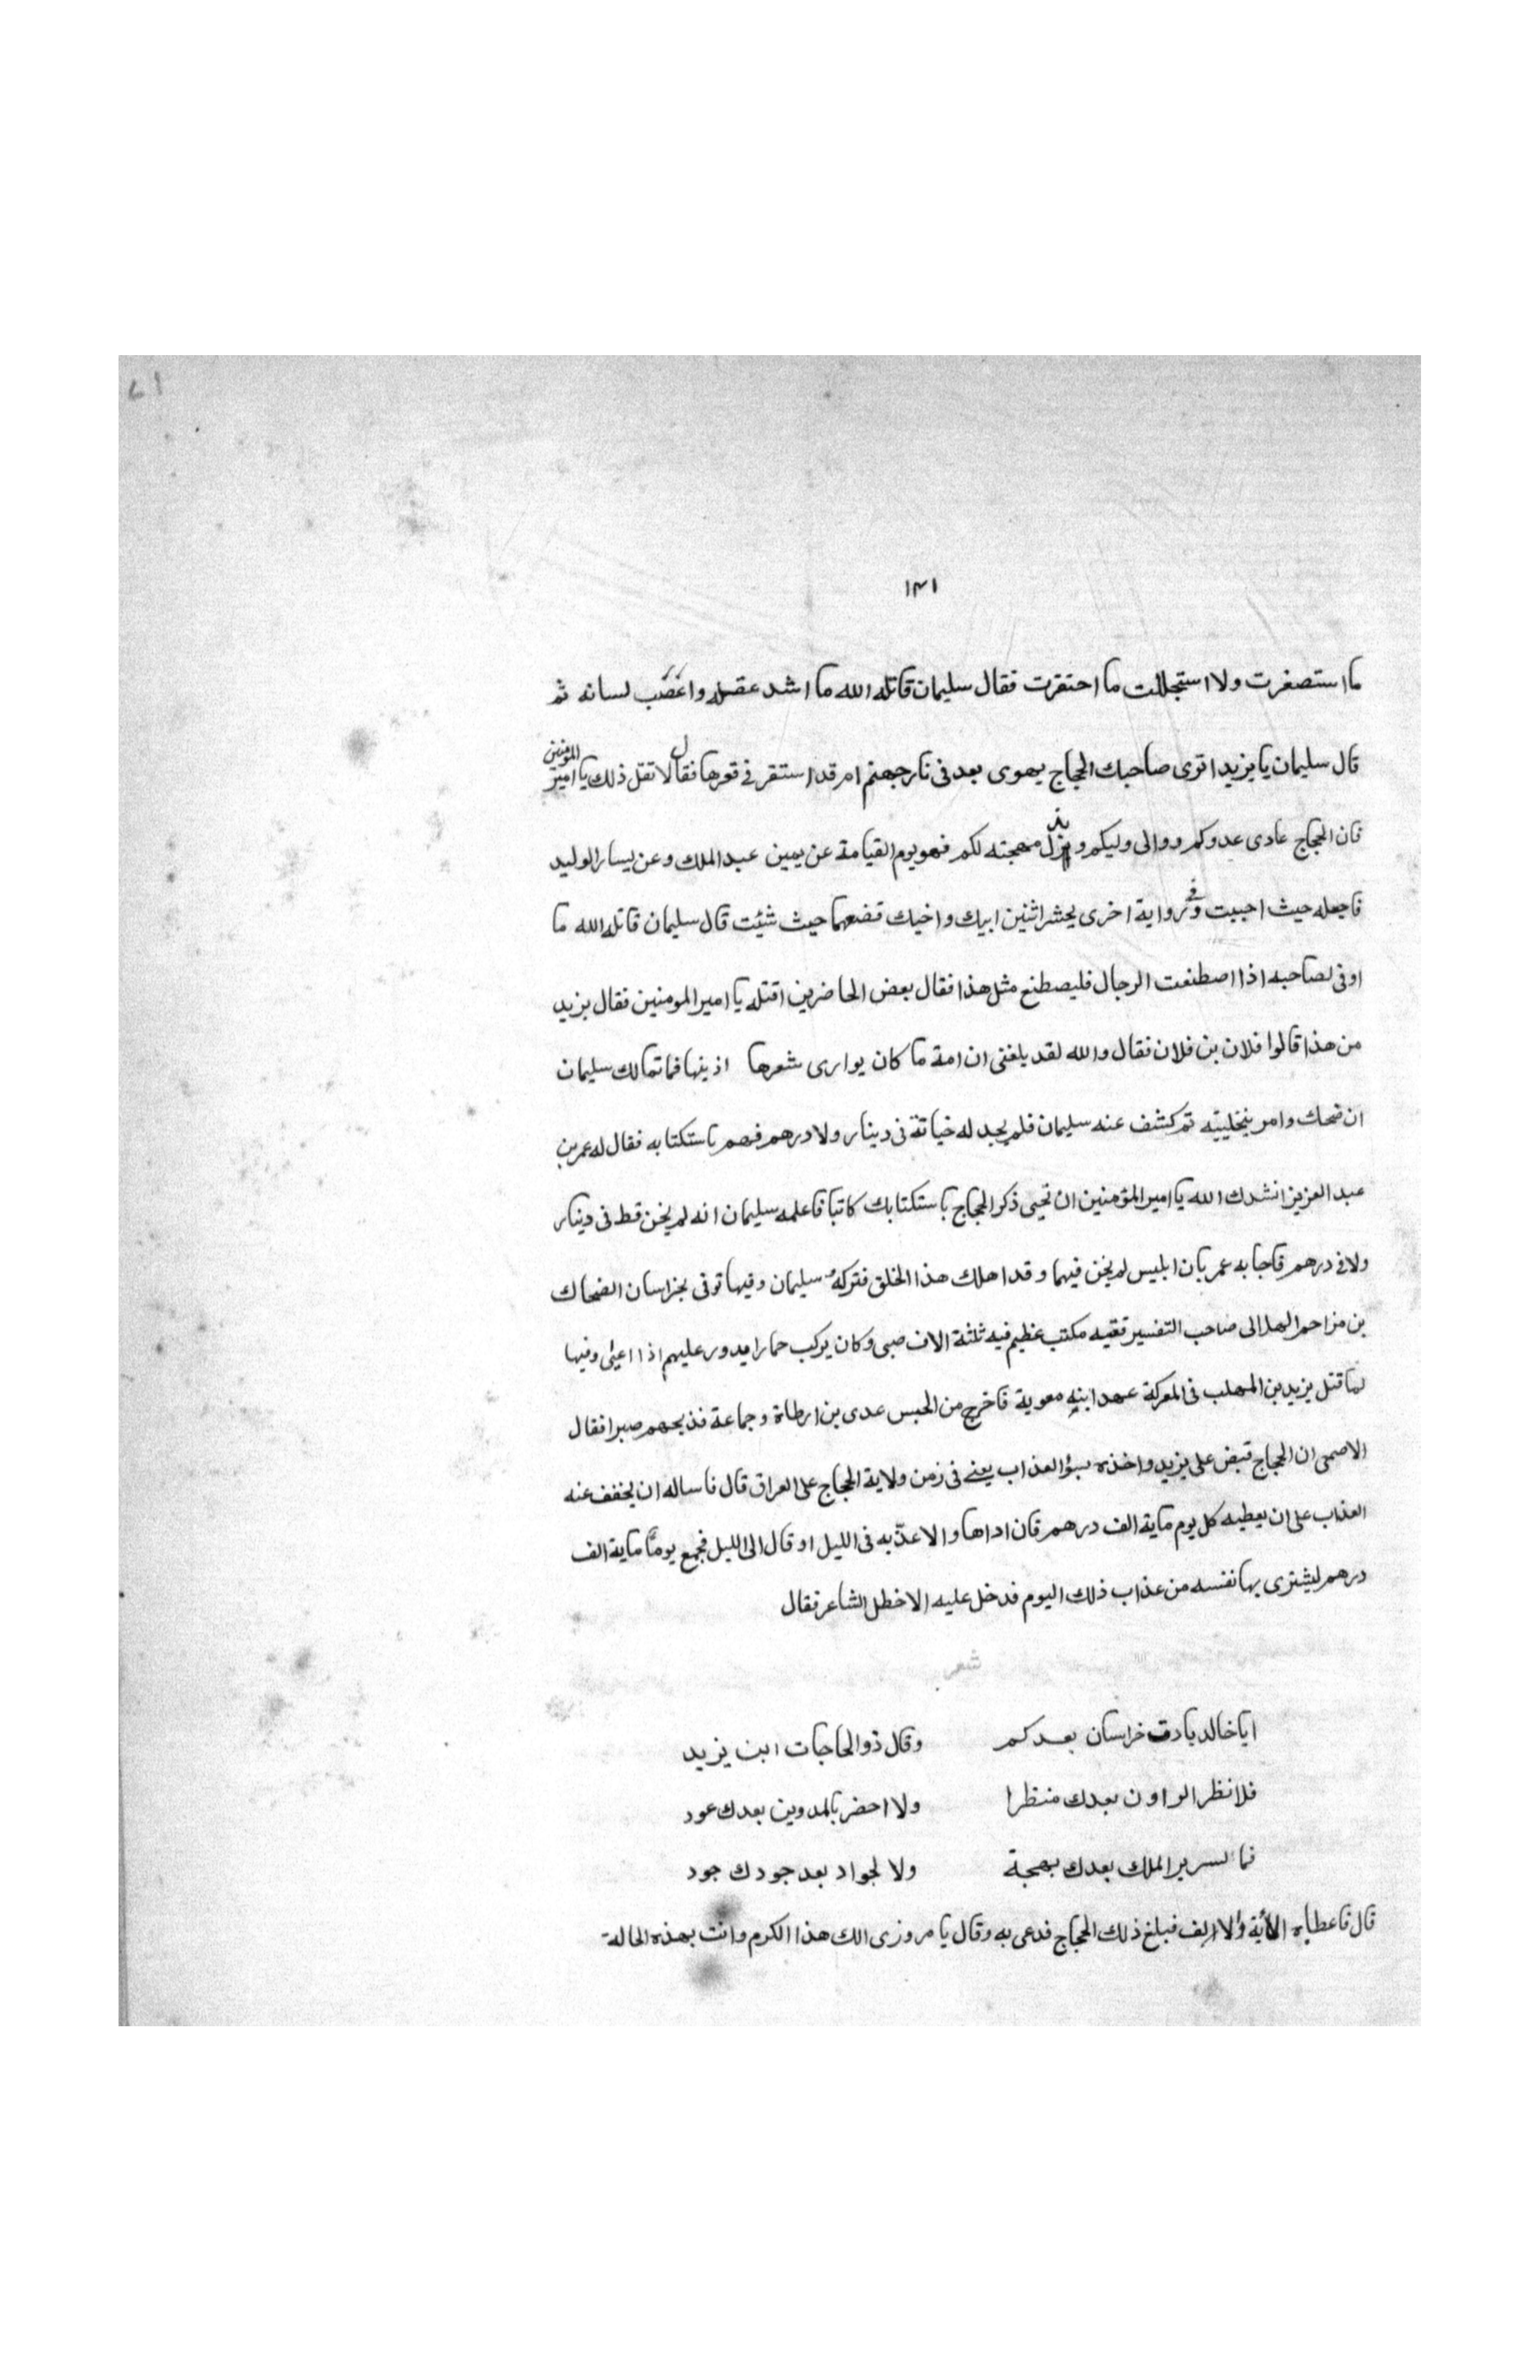 ١٤١
ما استصغرت ولا استجللت ما احتقرت فقال سليمان قاتله الله ما اشد عقله واعضب لسانه ثم
قال سليمان يا يزيد اترى صاحبك الحجاج يهوى بعد فى نار جهنم ام قد استقر فى قعرها فقال لا تقل ذلك يا امير المومنين
فان الحجاج عادى عدوكم ووالى وليكم وبذل مهجته لكم فهو يوم القيامة عن يمين عبد الملك وعن يسار الوليد
فاجعله حيث احببت وفى رواية اخرى يحشر اثنين ابيك واخيك فضعهما حيث شئت قال سليمان قاتله الله ما
اوفى لصاحبه اذا اصطنعت الرجال فليصطنع مثل هذا فقال بعض الحاضرين اقتله يا امير المومنين فقال يزيد
من هذا قالوا فلان بن فلان فقال والله لقد بلغنى ان امة ما كان يوارى شعرها اذينها فما تمالك سليمان
ان ضحك وامر بتخليته ثم كشف عنه سليمان فلم يجد له خيانة فى دينار ولا درهم فهم باستكتابه فقال له عمر بن
عبد العزيز انشدك الله يا امير المؤمنين ان تحيى ذكر الحجاج باستكتابك كاتبا فاعلمه سليمان انه لم يخن قط فى دينار
ولا فى درهم فاجابه عمر بان ابليس لم يخن فيهما وقد اهلك هذا الخلق فتركه سليمان وفيها توفى بخراسان الضحاك
بن مزاحم الهلالى صاحب التفسير فقيه مكتب عظيم فيه ثلثة الاف صبى وكان يركب حمارا ويدور عليهم اذا اعيى وفيها
لما قتل يزيد بن المهلب فى المعركة عهد ابنه معوية فاخرج من الحبس عدى بن ارطاة وجماعة فذبحهم صبرا فقال
الاصمعى ان الحجاج قبض على يزيد واخذه بسؤ العذاب يعنى فى زمن ولاية الحجاج على العراق قال فاساله ان يخفف عنه
العذاب على ان يعطيه كل يوم ماية الف درهم فان اداها والا عذّبه فى الليل او قال الى الليل فجمع يومًا ماية الف
درهم ليشترى بها نفسه من عذاب ذلك اليوم فدخل عليه الاخطل الشاعر فقال
شعر
ايا خالد بادت خراسان بعدكم وقال ذو الحاجات اين يزيد
فلا نظر الراون بعدك منظرا ولا احضر بالمدوين بعدك عود
فما لسرير الملك بعدك بهجة ولا لجواد بعد جودك جود
قال فاعطاه الماية الالف فبلغ ذلك الحجاج فدعى به وقال يا مروزى الك هذا الكرم وانت بهذه الحالة